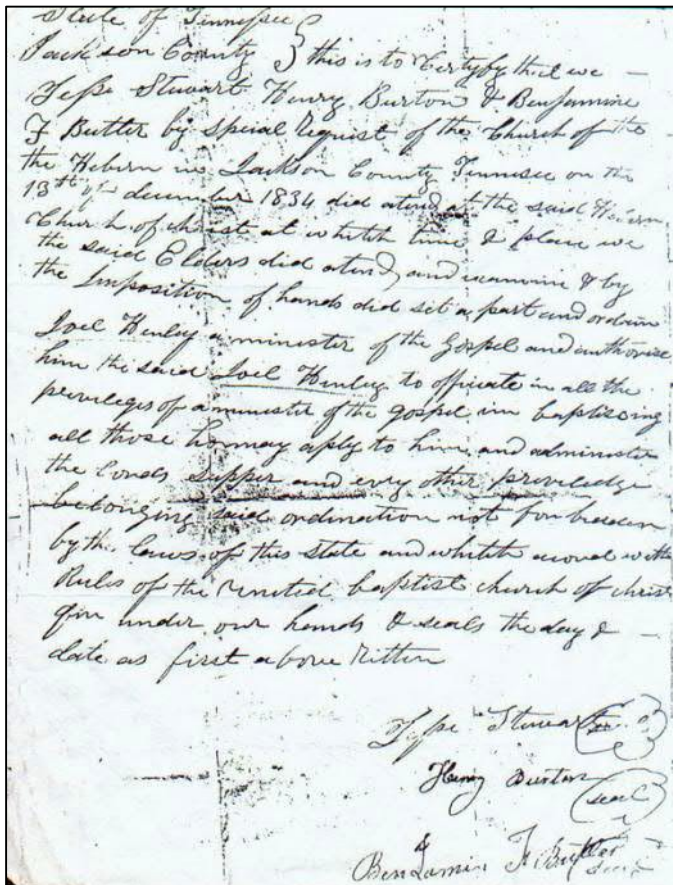 State of Tennessee
Jackson County } this is to Certyfy that we
Jesse Stewart Henry Burton & Benjamine
F Butler by Special Request of the Church of the
the Heburn in Jackson County Tennisee on the
13th of december 1834 did atend at the said
Church of christ at whitch time & place we
the said Elders did atend and examine & by
the Imposition of hands did set a part and ordain
Joel Henley a minister of the Gospel and authorise
him the said Joel Henley to officate in all the
priveleges of a minister of the gospel im baptiseing
all those ho may aply to him and administer
the lords supper and evry other priveledge
belonging said ordination not forbidden
by the laws of this state and whitch acord with
Rules of the united baptist church of christ
giv under our hands & seals the day &
date as first above Ritten
Jesse Stewart
Henry Burton (seal)
&
Benjamin F Butler